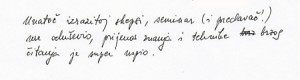 Unatoč izrazitoj skepsi, seminar (i predavač!)
me oduševio, prijenos znanja i tehnike brzog
čitanja je super uspio.